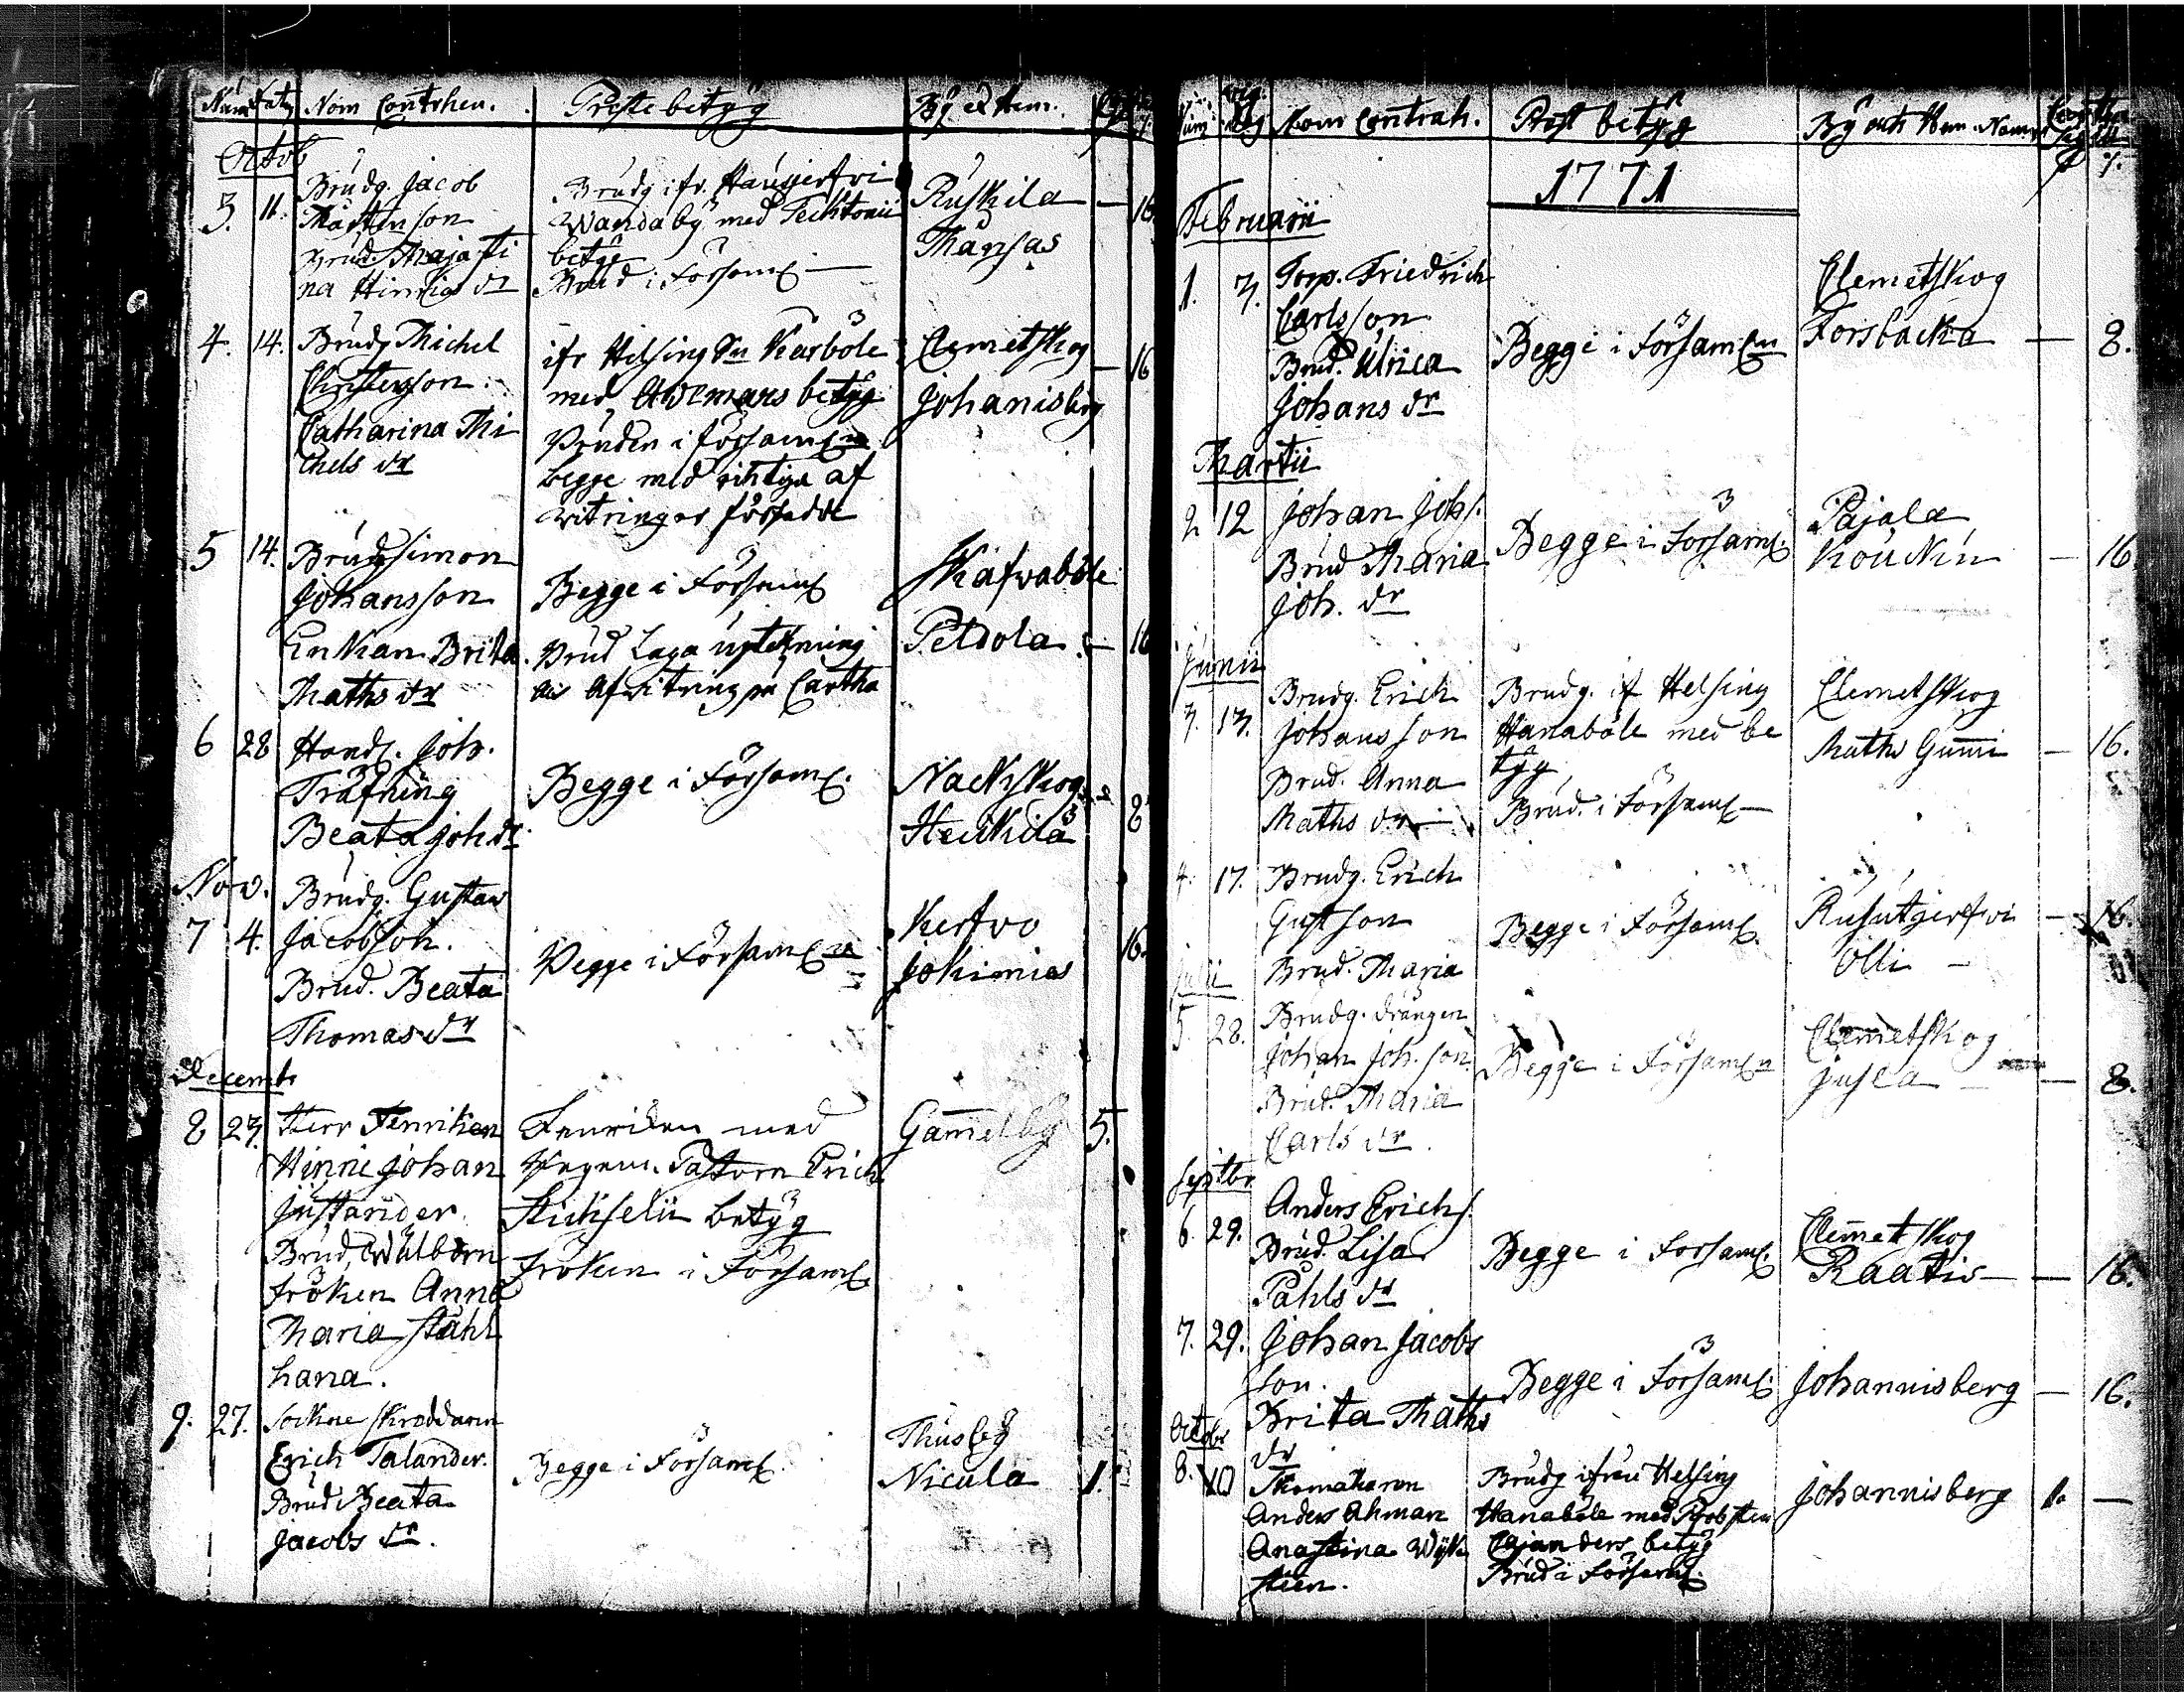 Num Dat Nom Contrhen. Preste betyg By et Hem.
Octob
3. 11. Brudg. Jacob
Mårtenson
Brud Maja Sti
na Hinrics dr
Brudg. ifr.
Wandaby med
betyg
Brud i Församl
Ruskila
Månsas
16
4. 14. Brudg Michel
Christersson
Catharina Mi
chels dr
ifr Helsing Sn Kårböle
med betyg
Bruden i församln
begge med riktiga af
witringar försedde
Clemetskog
Johanisberg
16
5 14. Brudg Simon
Johansson
Enkian Brita
Maths dr
Begge i Församl
Brud Laga
Afwitring på Cartha
Skafwaböle
Peltola
16
6 28 Joh.
Träfning
Beata Joh dr
Begge i Församl.
Nackskog
Heikilä
8
Nov.
7 4. Brudg. Gustav
Jacobson.
Brud. Beata
Thomas dr
Begge i Församln
Kerfvo
Jokimies
16.
Decemb
8 27. Herr Fenriken
Hinric Johan
Justander
Brud, Wälborn
Fröken Anna
Maria Stålh
hana.
Fenriken med
Pastorn Erich
betyg
Fröken i Församl
Gam̄elby
5.
9. 27. Sockne Skräddaren
Erich Talander.
Brud Beata
Jacobs dr.
Begge i Församl.
Thusby
Nicula
1.
Num Dag Nom Contrah. Prest betyg By och Hem. Namn
1771
Februarii
1. 3. Torp. Friedrich
Carlsson
Brud. Ulrica
Johans dr
Begge i Församln
Clemetskog
Forsbacka
— 8.
Martii
2 12 Johan Johs.
Brud Maria
Joh. dr
Begge i Församl.
Pajala
Koukku
— 16
Junii
3. 13. Brudg. Erich
Johansson
Brud. Anna
Maths dr
Brudg. if Helsing
Hanaböle med be
tyg
Brud. i Församl
Clemetskog
Maths Gummi
— 16.
4. 17. Brudg. Erich
Gustson
Brud. Maria
Begge i Församl.
Rusutjerfvi
Olli —
— 16.
Julii
5. 28. Brudg. drängen
Johan Joh. son
Brud. Maria
Carls dr.
Begge i Församln
Clemetskog
Jusla
— 8.
Septbr
6. 29. Anders Erichs.
Brud. Lisa
Påhls dr
Begge i Församl.
Clemetskog
Raatis
— 16.
7. 29. Johan Jacobs
son.
Brita Maths
dr
Begge i Församl.
Johannisberg
— 16.
Octobr
8. 10 Skomakaren
Anders Ahman
Anastina Wijk
sten.
Brudg ifrån Helsing
Hanaböle med Probsten
Cajanders betyg
Brud i Församl.
Johannisberg
1. —